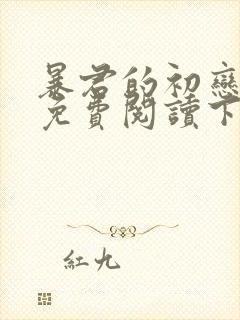 暴君的初戀
免費閱讀下
紅九